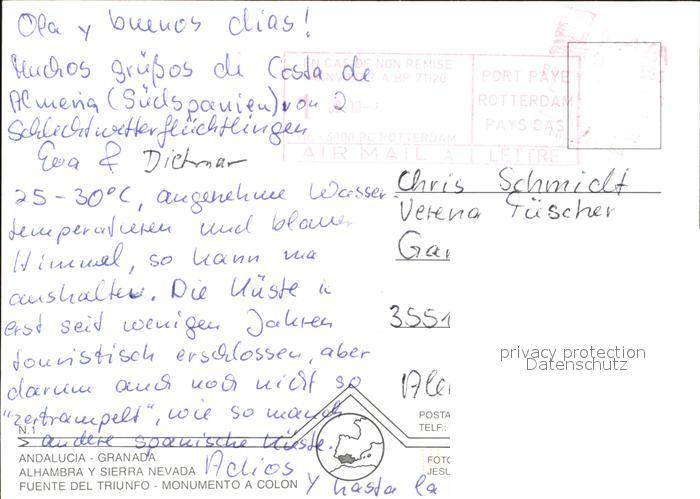 Ola y buenos dias!
Muchos grüßos di Costa de
Almeria (Südspanien) von 2
Schlechtwetterflüchtlingen
Ewa & Dietmar
25-30°C, angenehme Wasser-
temperaturen und blauer
Himmel, so kann ma
aushalten. Die Küste i
erst seit wenigen Jahren
touristisch erschlossen, aber
darum auch noch nicht so
"zertrampelt", wie so manch
andere spanische Küste.
Adios
y hasta la
EN CAS DE NON REMISE
A BP 71120
PC ROTTERDAM
AIR MAIL
PORT PAYE
ROTTERDAM
PAYS BAS
LETTRE
Chris Schmidt
Verena Tüscher
Gar
3551
privacy protection
Datenschutz
N.1
ANDALUCIA - GRANADA
ALHAMBRA Y SIERRA NEVADA
FUENTE DEL TRIUNFO - MONUMENTO A COLON
POSTA
TELF.:
FOTO
JESU